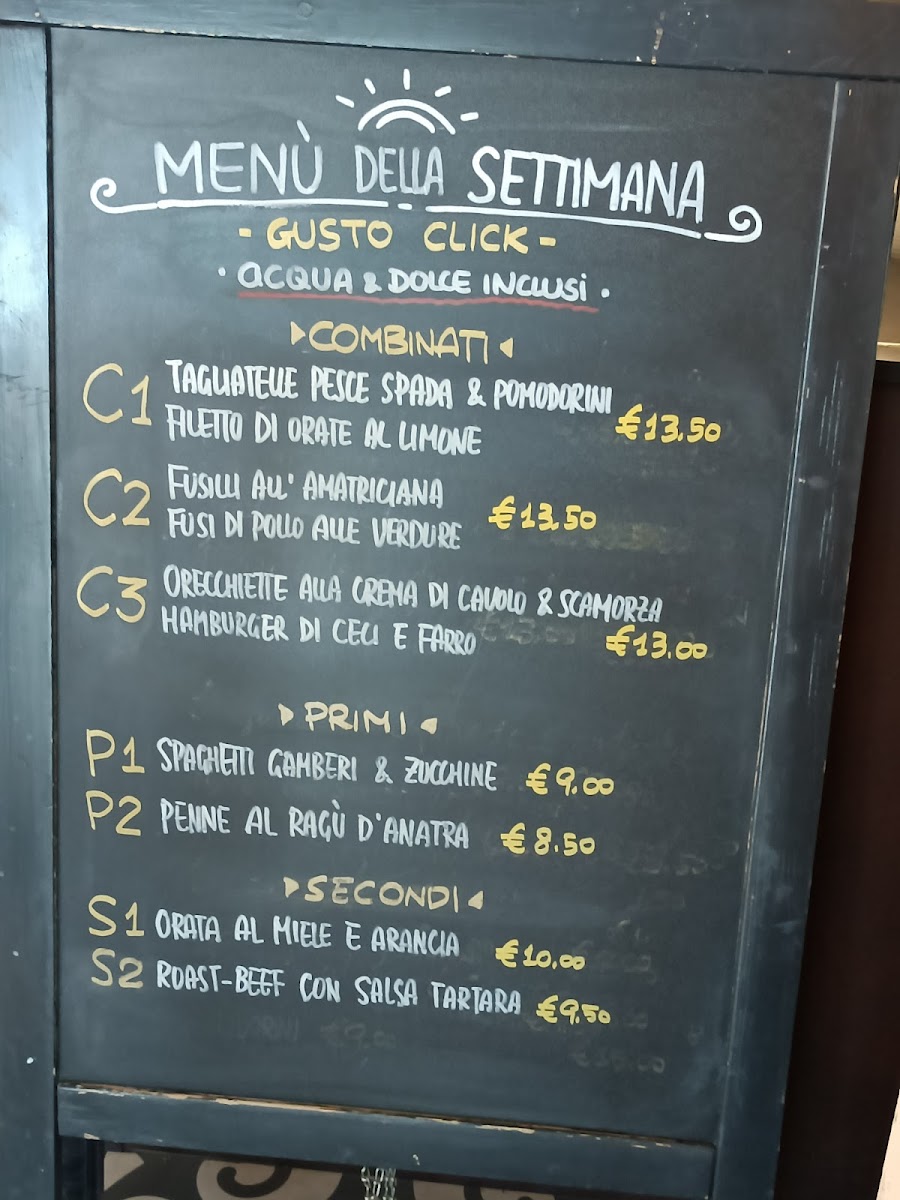 MENÙ DELLA SETTIMANA
- GUSTO CLICK -
· ACQUA & DOLCE INCLUSI ·
COMBINATI
C1 TAGLIATELLE PESCE SPADA & POMODORINI
FILETTO DI ORATE AL LIMONE €13.50
C2 FUSILLI ALL' AMATRICIANA
FUSI DI POLLO ALLE VERDURE €13.50
C3 ORECCHIETTE ALLA CREMA DI CAVOLO & SCAMORZA
HAMBURGER DI CECI E FARRO €13.00
PRIMI
P1 SPAGHETTI GAMBERI & ZUCCHINE €9.00
P2 PENNE AL RAGÙ D'ANATRA €8.50
SECONDI
S1 ORATA AL MIELE E ARANCIA €10.00
S2 ROAST-BEEF CON SALSA TARTARA €9.50